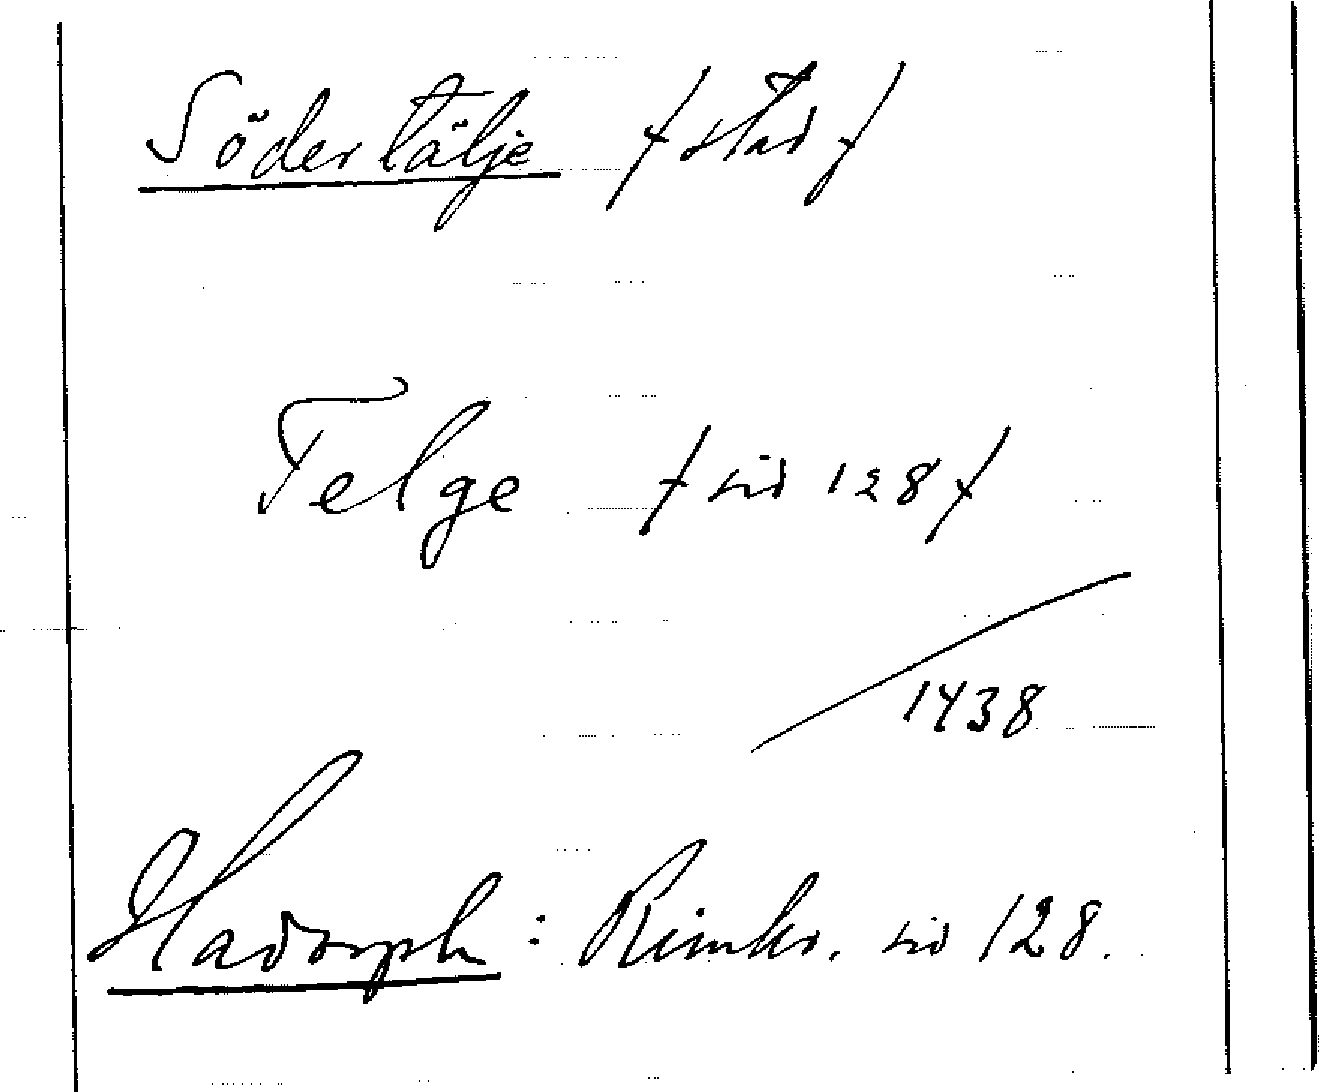 Södertälje /stad/
Telge /sid 128/
1438
Hadorph: Rimkr. sid 128.